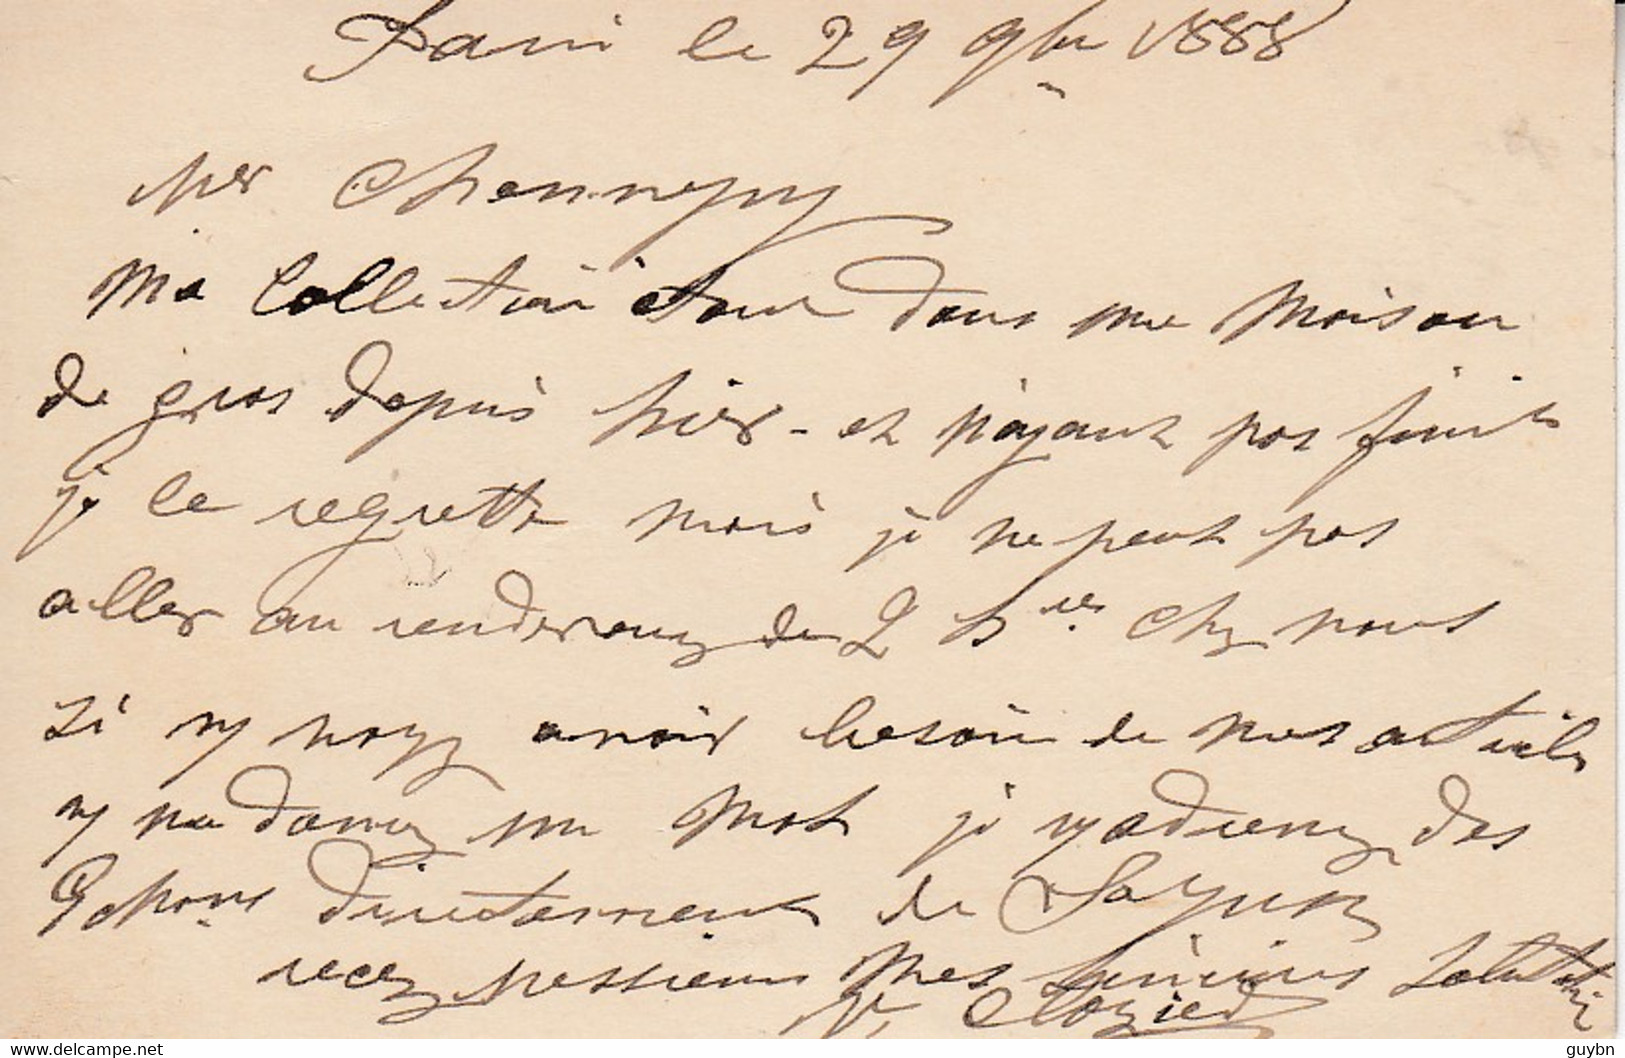 Paris le 29 9bre 1888
Mer Chennepy
Ma Collection étant dans une Maison
de gros depuis hier - et n'ayant pas finit
je le regrette mais je ne peut pas
aller au renderouz de 2 hres chez nous
si vs avoir besoin de mes articles
vs me donnez un mot je vs des
directement de
recez messieurs mes sincères Salutations
V. Clozied
delcampe.net
guybn